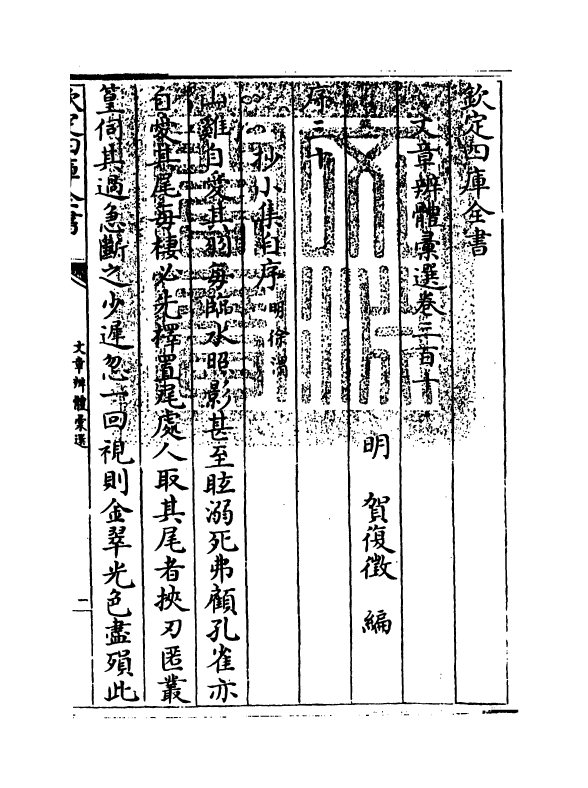 欽定四庫全書
文章辨體彚選卷三百十
明 賀復徵 編
序三十
抄小集自序 明徐渭
山雞自愛其羽每臨水照影甚至眩溺死弗顧孔雀亦
自愛其尾每棲必先擇置尾處人取其尾者挾刃匿叢
篁伺其過急斷之少遲忽一回視則金翠光色盡殞此
欽定四庫全書
文章辨體彚選
二